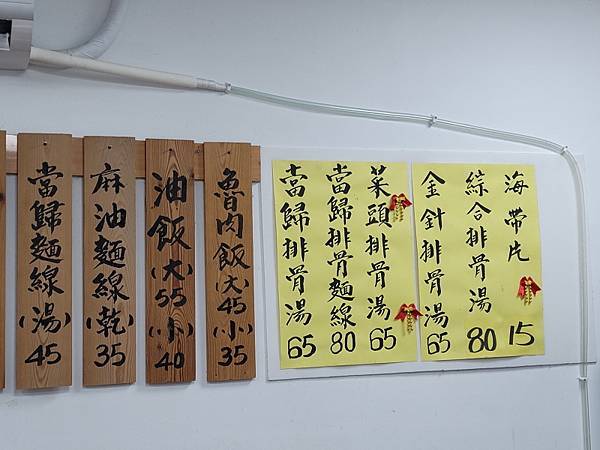 當歸麵線(湯)45
麻油麵線(乾)35
油飯(大)55(小)40
魯肉飯(大)45(小)35
當歸排骨湯65
當歸排骨麵線80
菜頭排骨湯65
金針排骨湯65
綜合排骨湯80
海帶片15